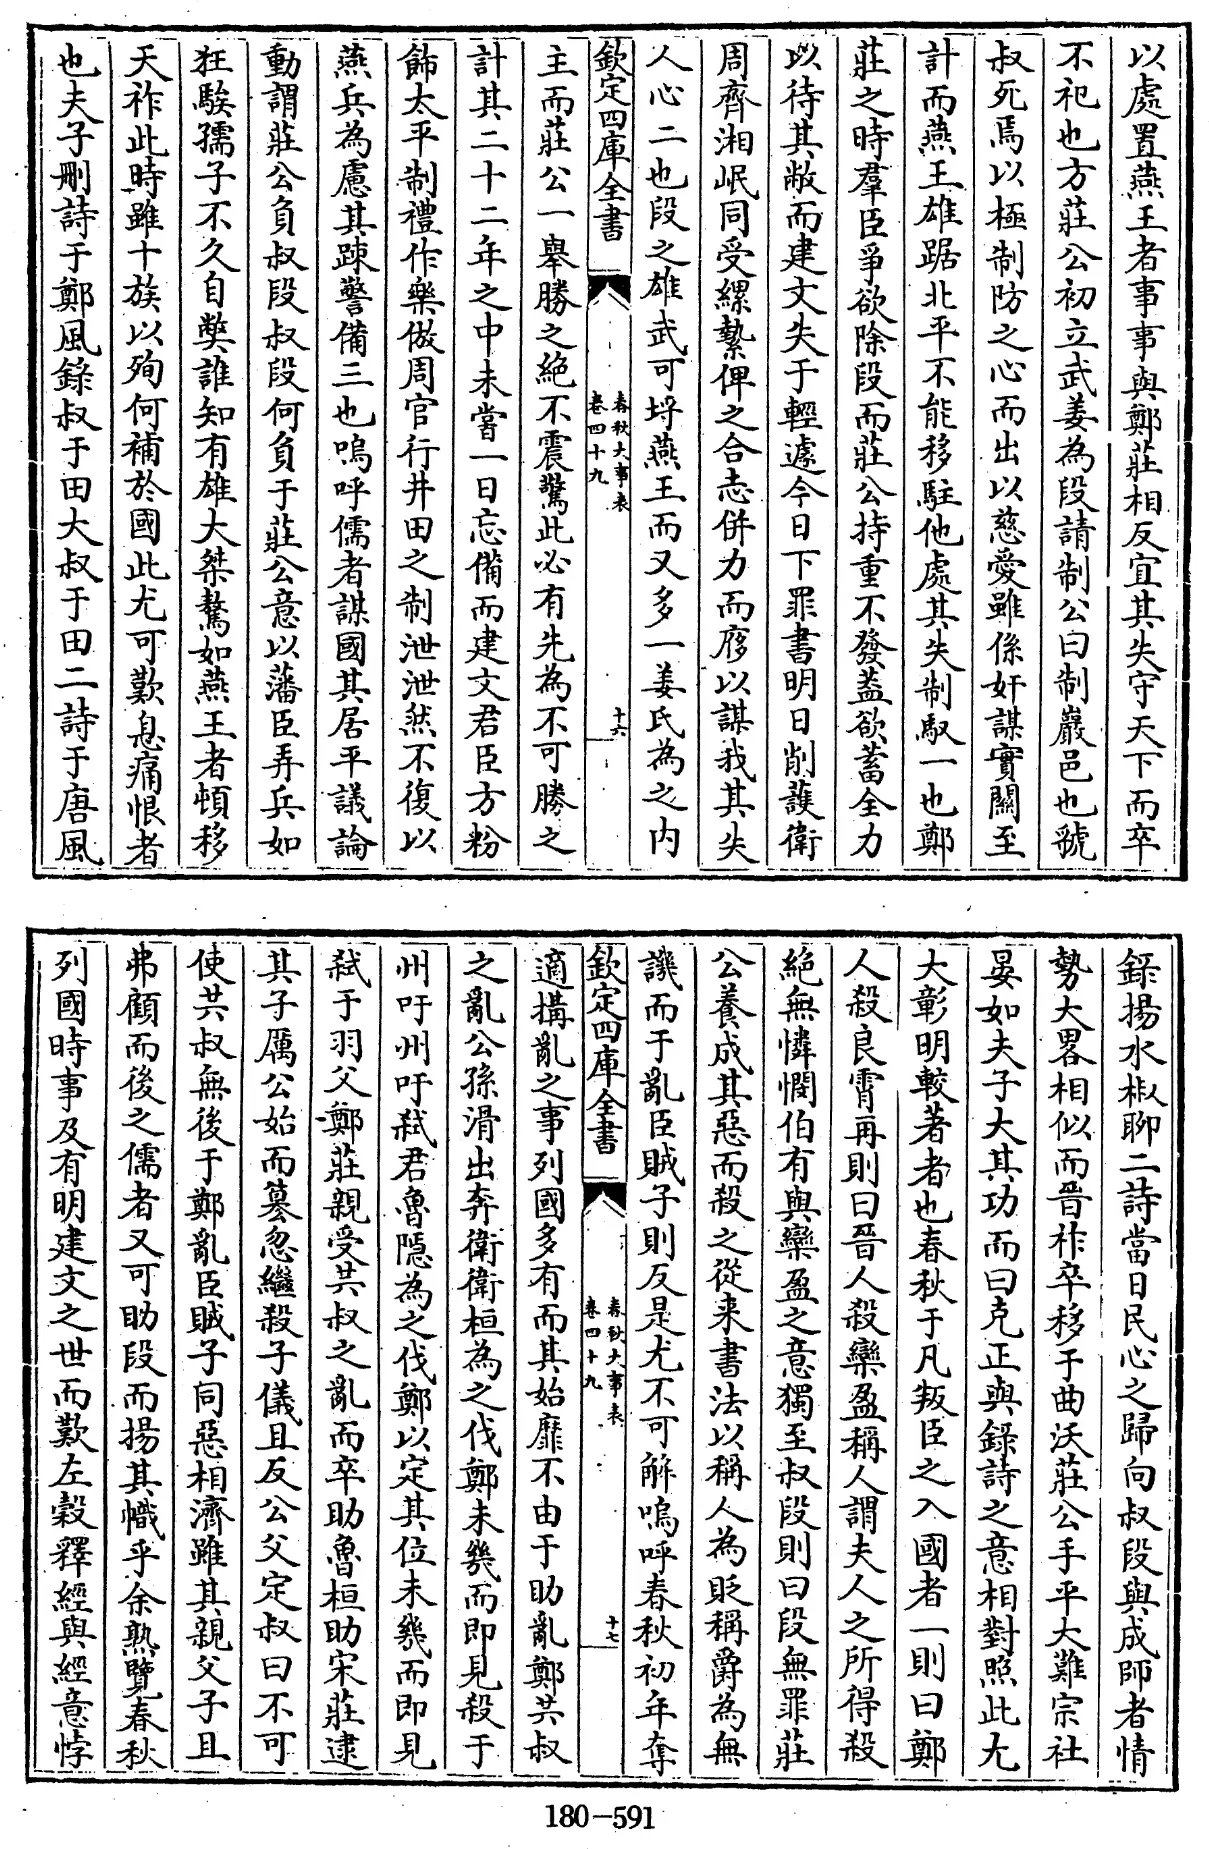 以處置燕王者事事與鄭莊相反宜其失守天下而卒
不祀也方莊公初立武姜為段請制公曰制巖邑也虢
叔死焉以極制防之心而出以慈愛雖係奸謀實關至
計而燕王雄踞北平不能移駐他處其失制馭一也鄭
莊之時羣臣爭欲除段而莊公持重不發蓋欲蓄全力
以待其敝而建文失于輕遽今日下罪書明日削護衛
周齊湘岷同受縲縶俾之合志併力而厚以謀我其失
人心二也段之雄武可埒燕王而又多一姜氏為之内
欽定四庫全書
春秋大事表
卷四十九
十六
主而莊公一舉勝之絶不震驚此必有先為不可勝之
計其二十二年之中未嘗一日忘備而建文君臣方粉
飾太平制禮作樂倣周官行井田之制泄泄然不復以
燕兵為慮其踈警備三也嗚呼儒者謀國其居平議論
動謂莊公負叔段叔段何負于莊公意以藩臣弄兵如
狂騃孺子不久自斃誰知有雄大桀驁如燕王者頓移
天祚此時雖十族以殉何補於國此尤可歎息痛恨者
也夫子刪詩于鄭風錄叔于田大叔于田二詩于唐風
錄揚水椒聊二詩當日民心之歸向叔段與成師者情
勢大畧相似而晉祚卒移于曲沃莊公手平大難宗社
晏如夫子大其功而曰克正與錄詩之意相對照此尤
大彰明較著者也春秋于凡叛臣之入國者一則曰鄭
人殺良霄再則曰晉人殺欒盈稱人謂夫人之所得殺
絶無憐憫伯有與欒盈之意獨至叔段則曰段無罪莊
公養成其惡而殺之從來書法以稱人為貶稱爵為無
譏而于亂臣賊子則反是尤不可解嗚呼春秋初年奪
欽定四庫全書
春秋大事表
卷四十九
十七
適搆亂之事列國多有而其始靡不由于助亂鄭共叔
之亂公孫滑出奔衛衛桓為之伐鄭未幾而即見殺于
州吁州吁弑君魯隱為之伐鄭以定其位未幾而即見
弑于羽父鄭莊親受共叔之亂而卒助魯桓助宋莊逮
其子厲公始而簒忽繼殺子儀且反公父定叔曰不可
使共叔無後于鄭亂臣賊子同惡相濟雖其親父子且
弗顧而後之儒者又可助段而揚其幟乎余熟覽春秋
列國時事及有明建文之世而歎左穀釋經與經意悖
180-591